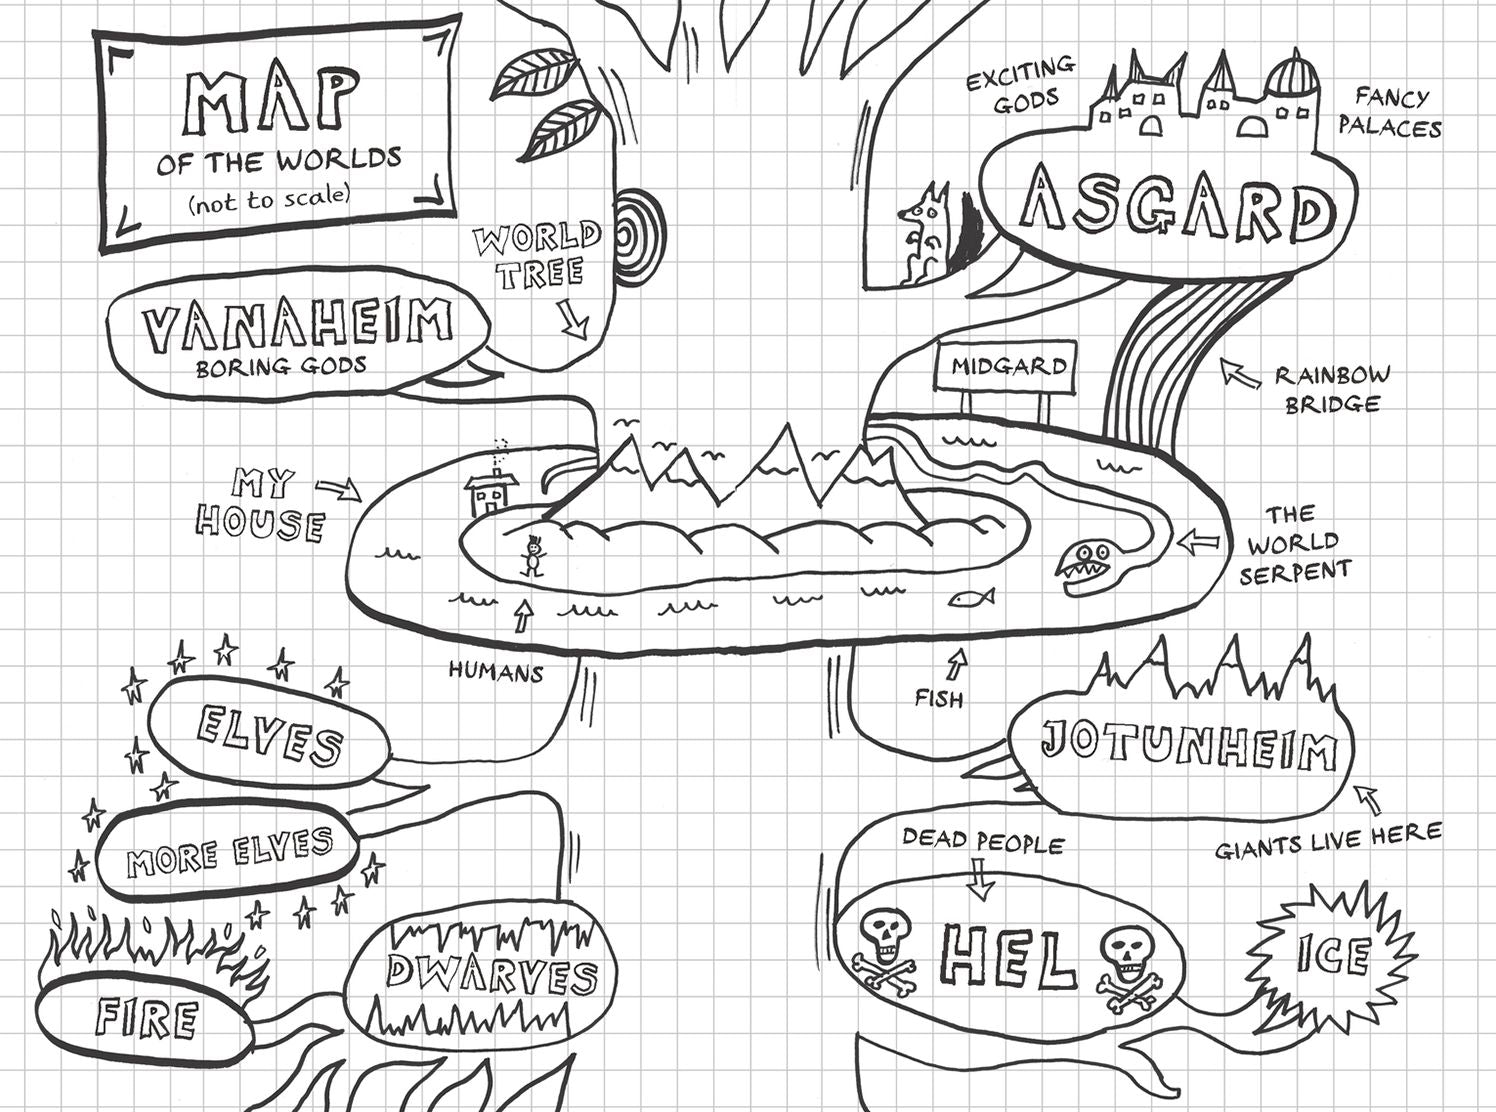 MAP
OF THE WORLDS
(not to scale)
EXCITING
GODS
FANCY
PALACES
ASGARD
WORLD
TREE
VANAHEIM
BORING GODS
MIDGARD
RAINBOW
BRIDGE
MY
HOUSE
THE
WORLD
SERPENT
HUMANS
FISH
ELVES
JOTUNHEIM
MORE ELVES
DEAD PEOPLE
GIANTS LIVE HERE
HEL
ICE
DWARVES
FIRE